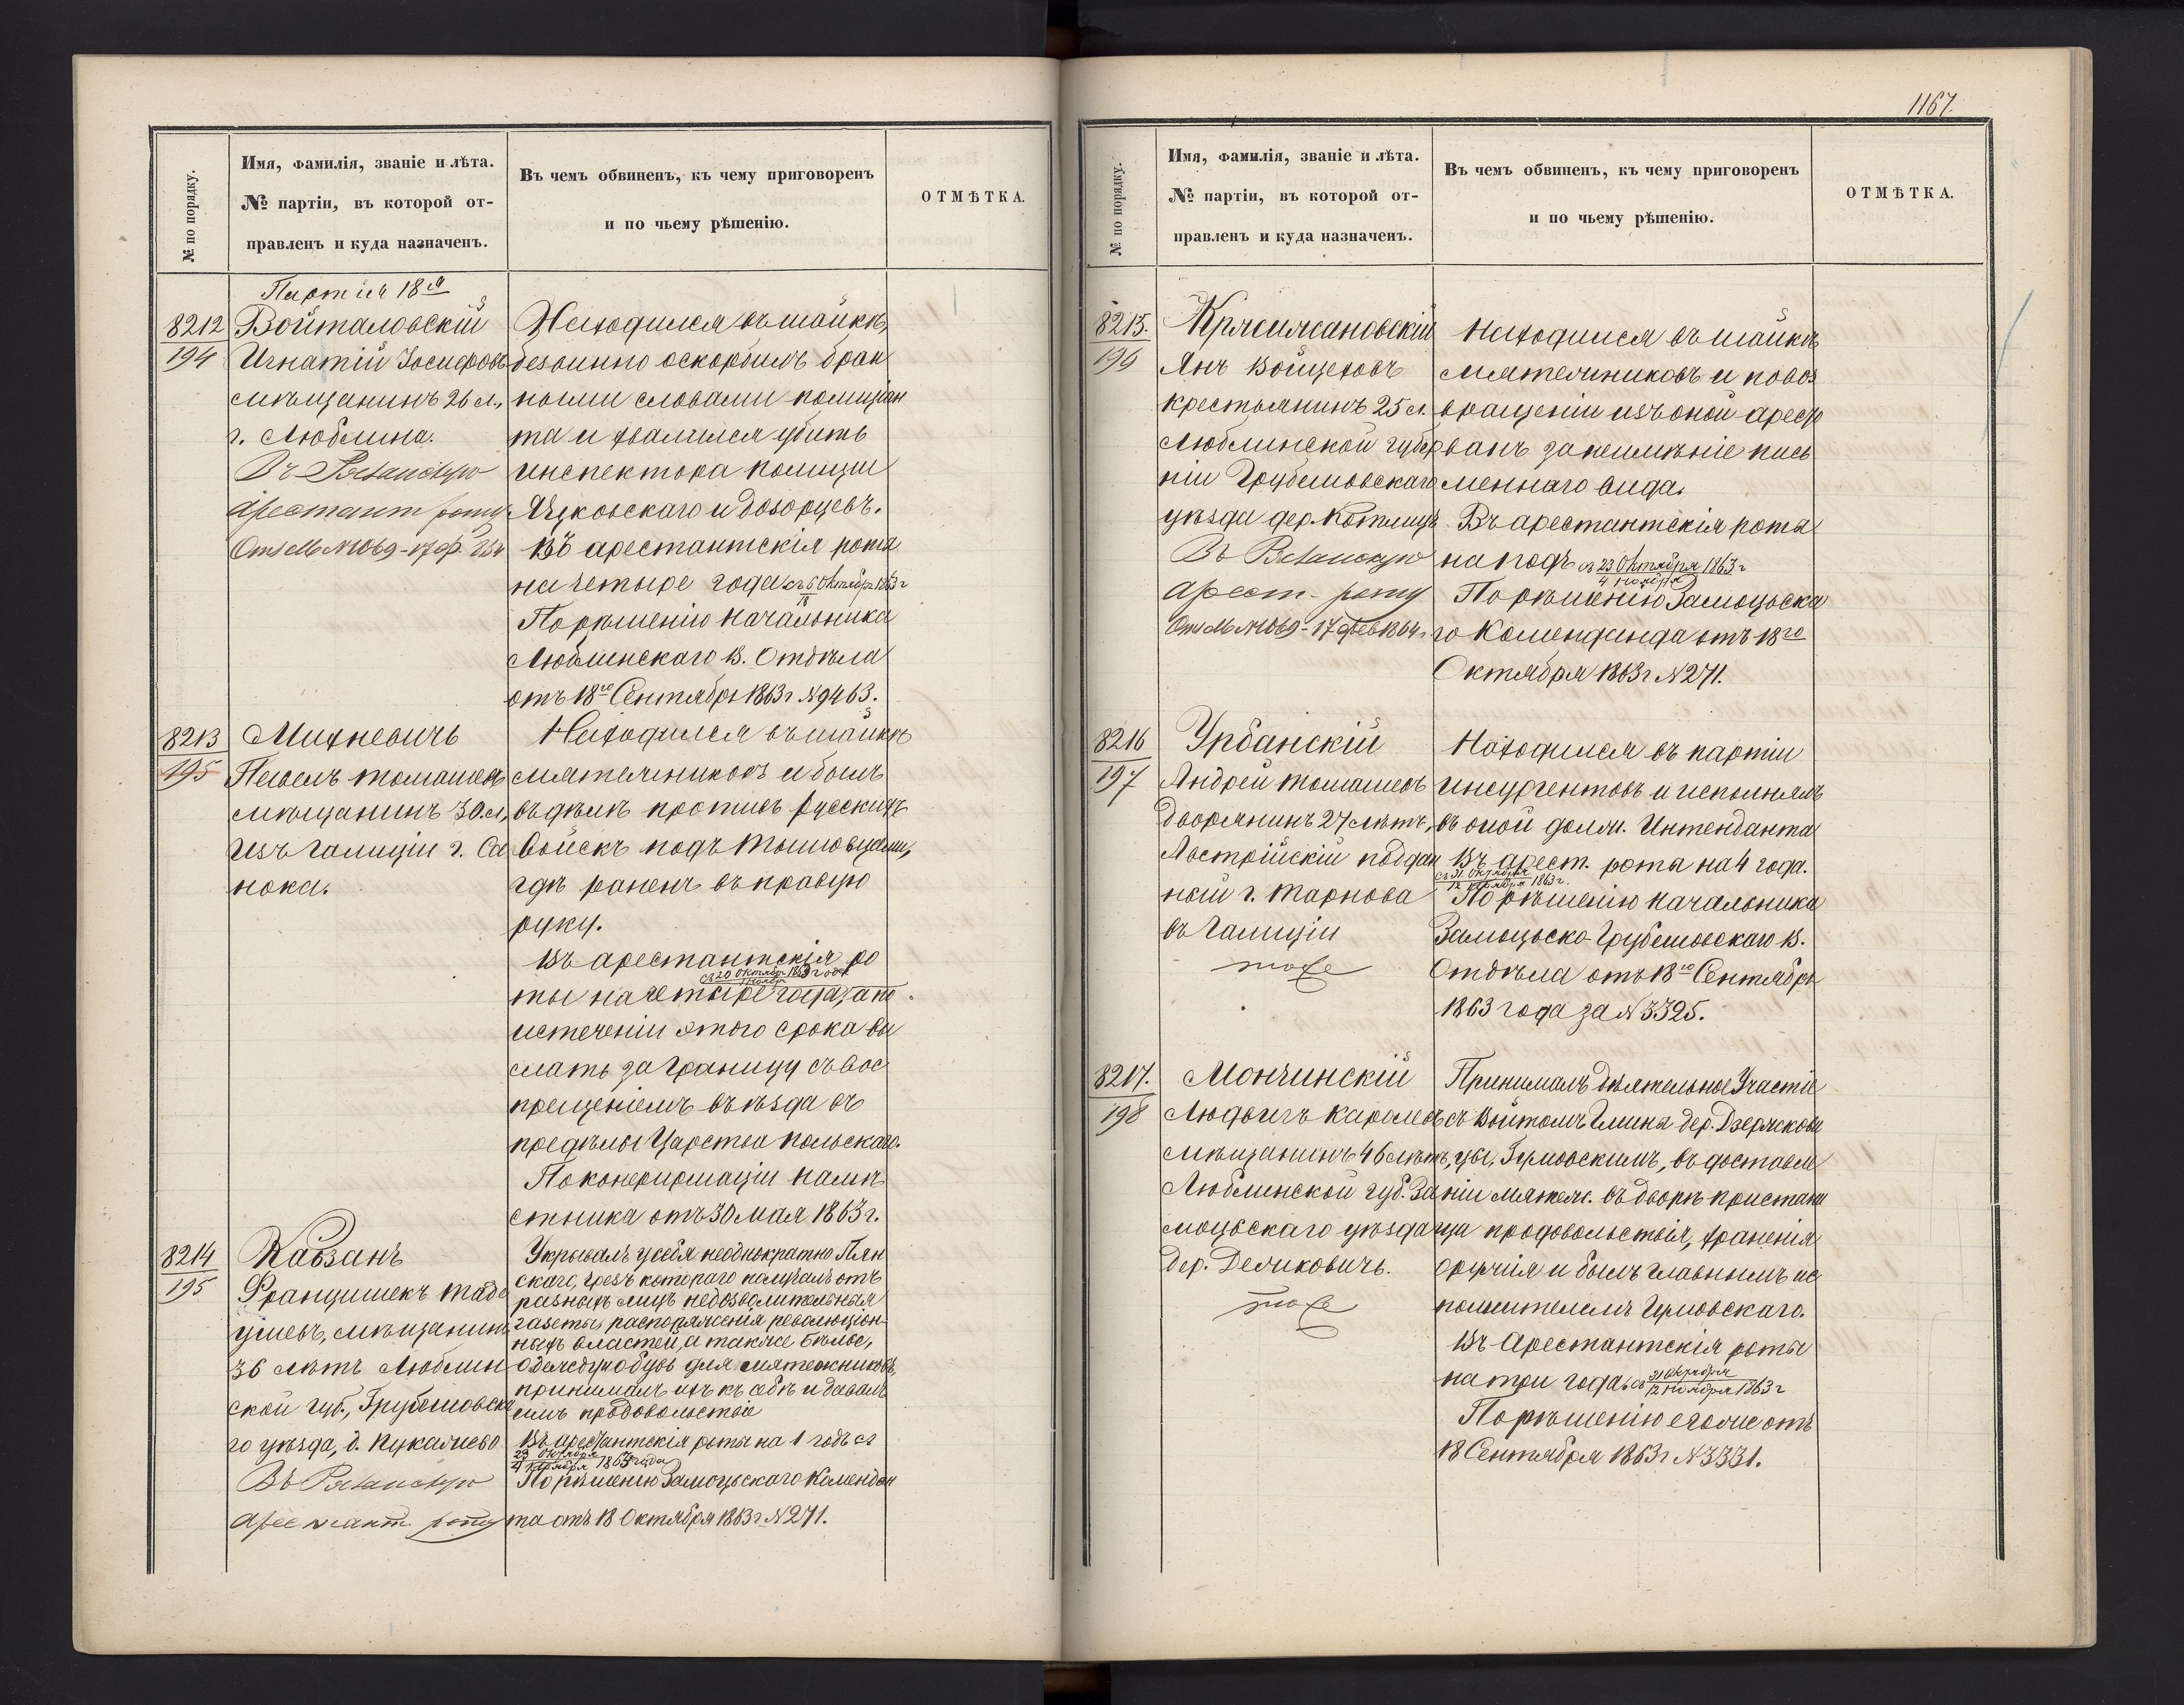 1167.
№ по порядку.
Имя, фамилія, званіе и лѣта.
№ партіи, въ которой от-
правленъ и куда назначенъ.
Въ чемъ обвиненъ, къ чему приговоренъ
и по чьему рѣшенію.
ОТМѢТКА.
Партія 18я
8212
194
Войталовскій
Игнатій Іосифовъ
мѣщанинъ 26 л.,
г. Люблина.
Въ Рязанскую
Арестант роту
Находился въ шайкѣ,
безвинно оскорбилъ бран
ными словами полиціан
та и хвалился убить
инспектора полиціи
и дозорцевъ.
Въ арестантскія роты
на четыре года съ 6/18 Октября 1863 г
По рѣшенію Начальника
Люблинскаго В. Отдѣла
отъ 18го Сентября 1863 г № 9463.
8213
195
Михневичъ
Павелъ Томашевъ
мѣщанинъ 30 л.,
изъ Галиціи г. Са
нока.
Находился въ шайкѣ
мятежниковъ и былъ
въ дѣлѣ противъ Русскихъ
Войскъ подъ Тышовцами,
гдѣ раненъ въ правую
руку.
Въ арестантскія ро
съ 20 Октября 1863 года
1 Ноября
ты на четыре года, а по
истеченіи этого срока вы
слать за границу съ вос
прещеніемъ въѣзда въ
предѣлы Царства Польскаго.
По конфирмаціи Намѣ
стника отъ 30 Мая 1863 г.
8214
195
Кавзанъ
Францишекъ Таде
ушевъ, мѣщанинъ
36 лѣтъ Люблин
ской губ., Грубешовска
го уѣзда, д.
Въ Рязанскую
Арестант. роту
Укрывалъ у себя неоднократно Лян
скаго, чрезъ котораго получалъ отъ
разныхъ лицъ недозволительныя
газеты, распоряженія революціон-
ныхъ властей, а также бѣлье,
одежду и обувь для мятежниковъ,
принималъ ихъ къ себѣ и давалъ
имъ продовольствіе
Въ арестантскія роты на 1 годъ съ
23 Октября
4 Ноября 1863 года
По рѣшенію Замосцьскаго Комендан
та отъ 18 Октября 1863 г № 271.
№ по порядку.
Имя, фамилія, званіе и лѣта.
№ партіи, въ которой от-
правленъ и куда назначенъ.
Въ чемъ обвиненъ, къ чему приговоренъ
и по чьему рѣшенію.
ОТМѢТКА.
8215.
196
Кржижановскій
Янъ Войцеховъ
крестьянинъ 25 л.
Люблинской губер
ніи Грубешовскаго
уѣзда дер. Котлицъ
Въ Рязанскую
Арест. роту
Находился въ шайкѣ
мятежниковъ и по воз
вращеніи изъ оной аресто
ванъ за неимѣніе пись
меннаго вида.
Въ арестантскія роты
на годъ съ 23 Октября 1863 г
4 Ноября
По рѣшенію Замосцьска
го Коменданта отъ 18го
Октября 1863 г № 271.
8216
197
Урбанскій
Андрей Томашевъ
дворянинъ 27 лѣтъ,
Австрійскій поддан
ный г. Тарнова
въ Галиціи
тоже
Находился въ партіи
инсургентовъ и исполнялъ
въ оной должн. Интенданта
Въ арест. роты на 4 года.
съ 31 Октября
12 Ноября 1863 г.
По рѣшенію Начальника
Замосцьско-Грубешовскаго В.
Отдѣла отъ 18го Сентября
1863 года за № 3325.
8217.
198
Мончинскій
Людвигъ Каролевъ
мѣщанинъ 46 лѣтъ,
Люблинской губ. За
мосцьскаго уѣзда
дер. Деликовичъ.
тоже
Принималъ дѣятельное участіе
съ Войтомъ Гмины дер. Дзерчскови
цы, Гумовскимъ, въ доставле
ніи мятеж. въ дворѣ пристани
ща продовольствія, храненія
оружія и былъ главнымъ ис
полнителемъ Гумовскаго.
Въ Арестантскія роты
на три года, съ 31 Октября
12 Ноября 1863 г
По рѣшенію его же отъ
18 Сентября 1863 г № 3331.